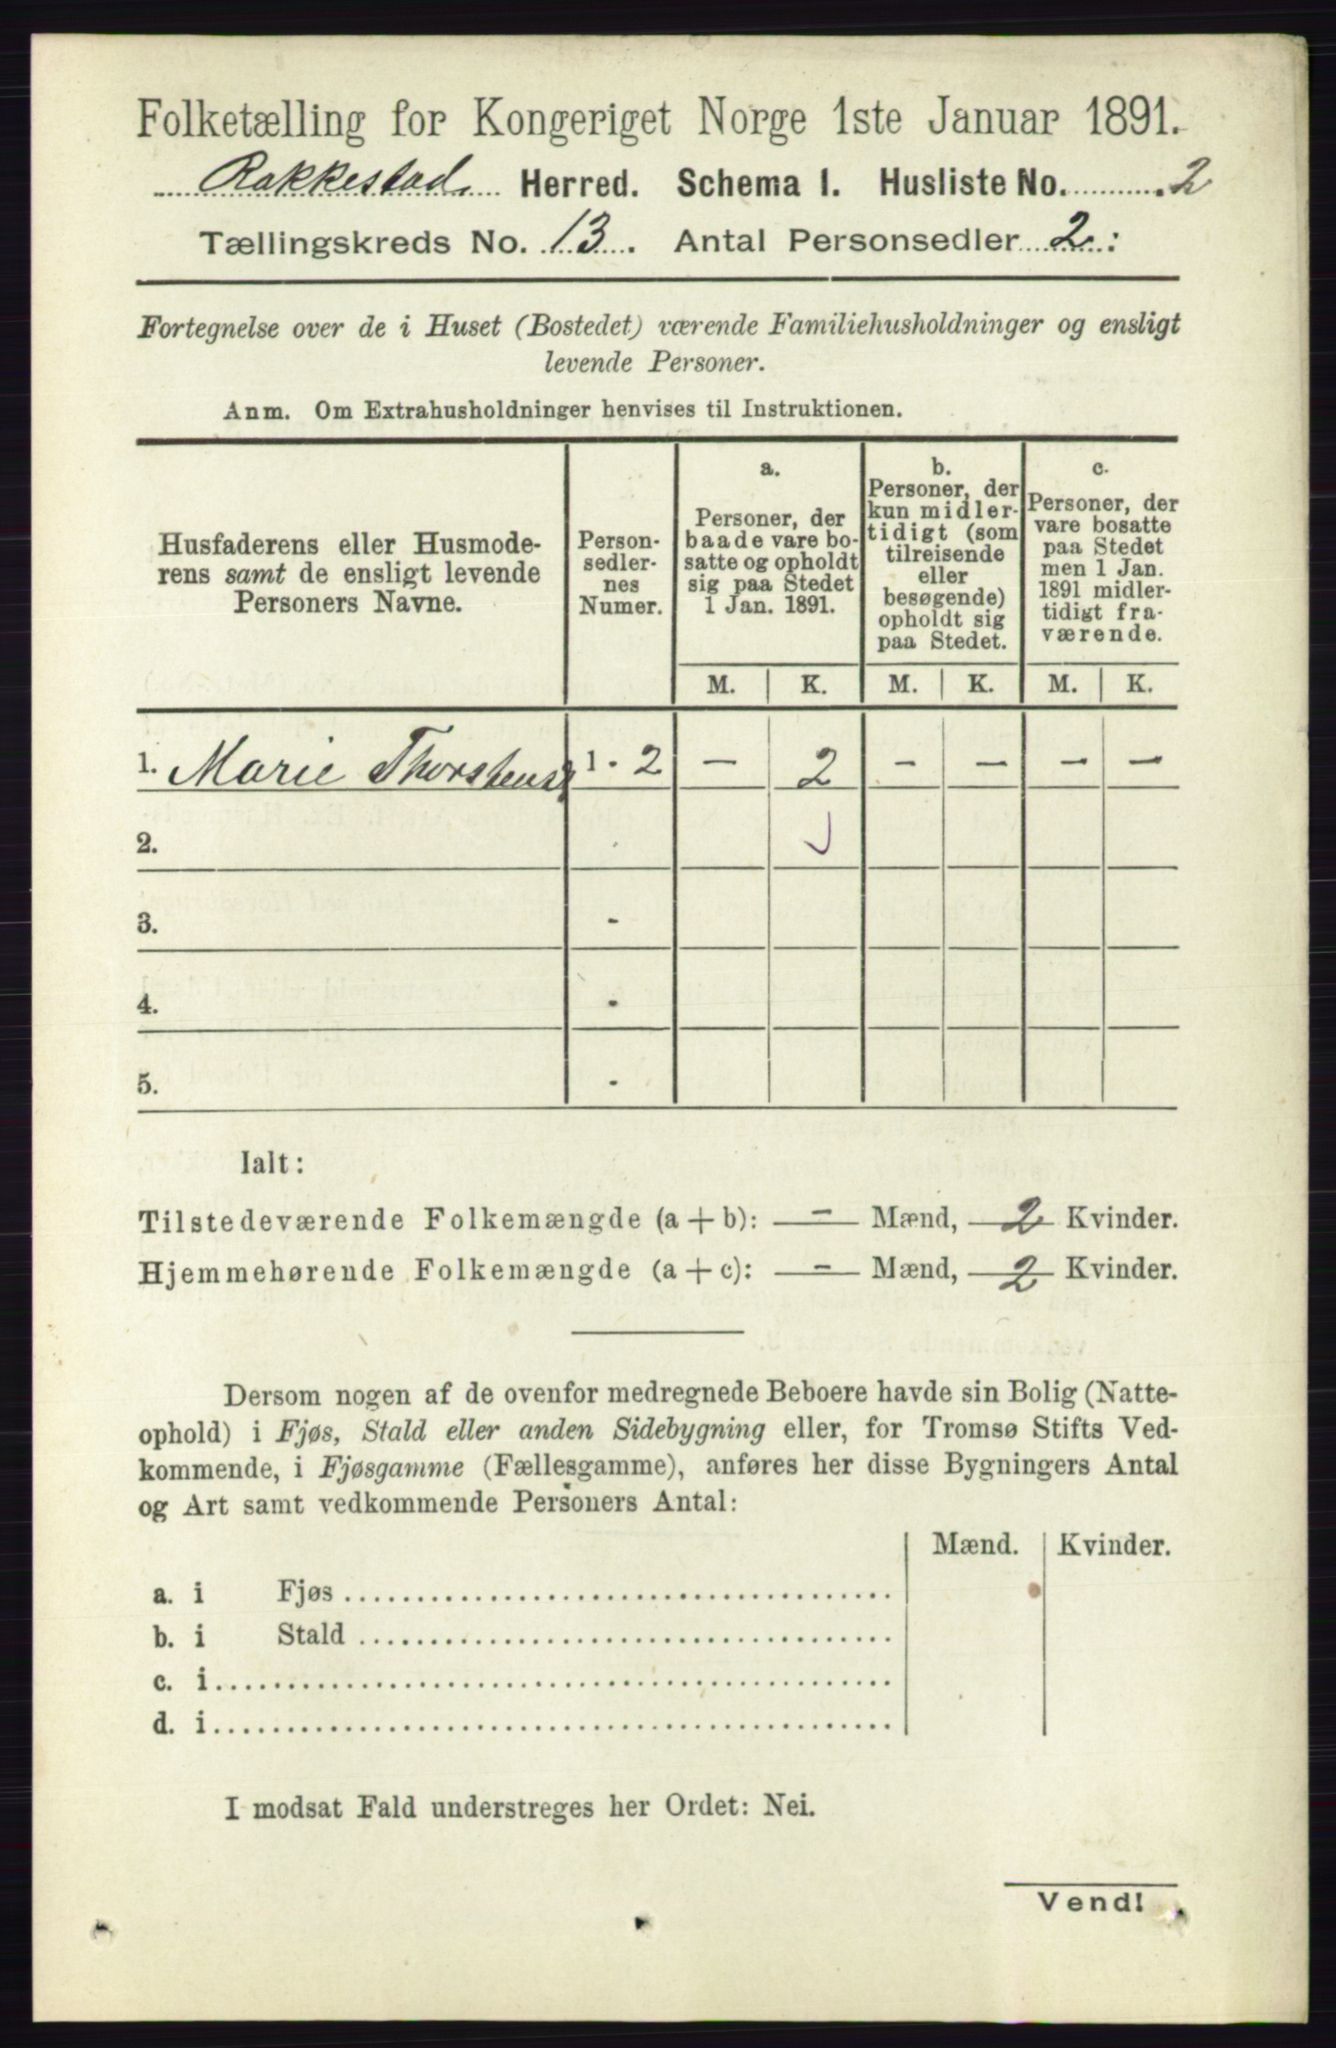 Folketælling for Kongeriget Norge 1ste Januar 1891.
Rakkestad Herred. Schema 1. Husliste No. 2
Tællingskreds No. 13. Antal Personsedler 2:
Fortegnelse over de i Huset (Bostedet) værende Familiehusholdninger og ensligt
levende Personer.
Anm. Om Extrahusholdninger henvises til Instruktionen.
Husfaderens eller Husmode-
rens samt de ensligt levende
Personers Navne.
Person-
sedler-
nes
Numer.
a.
Personer, der
baade vare bo-
satte og opholdt
sig paa Stedet
1 Jan. 1891.
b.
Personer, der
kun midler-
tidigt (som
tilreisende
eller
besøgende)
opholdt sig
paa Stedet.
c.
Personer, der
vare bosatte
paa Stedet
men 1 Jan.
1891 midler-
tidigt fra-
værende.
M. K. M. K. M. K.
1. Marie Thorstens 1 - 2 — 2 — — — —
2.
3. -
4. -
5. -
Ialt:
Tilstedeværende Folkemængde (a + b): — Mænd, 2 Kvinder.
Hjemmehørende Folkemængde (a + c): — Mænd, 2 Kvinder.
Dersom nogen af de ovenfor medregnede Beboere havde sin Bolig (Natte-
ophold) i Fjøs, Stald eller anden Sidebygning eller, for Tromsø Stifts Ved-
kommende, i Fjøsgamme (Fællesgamme), anføres her disse Bygningers Antal
og Art samt vedkommende Personers Antal:
Mænd. Kvinder.
a. i Fjøs
b. i Stald
c. i
d. i
I modsat Fald understreges her Ordet: Nei.
Vend!